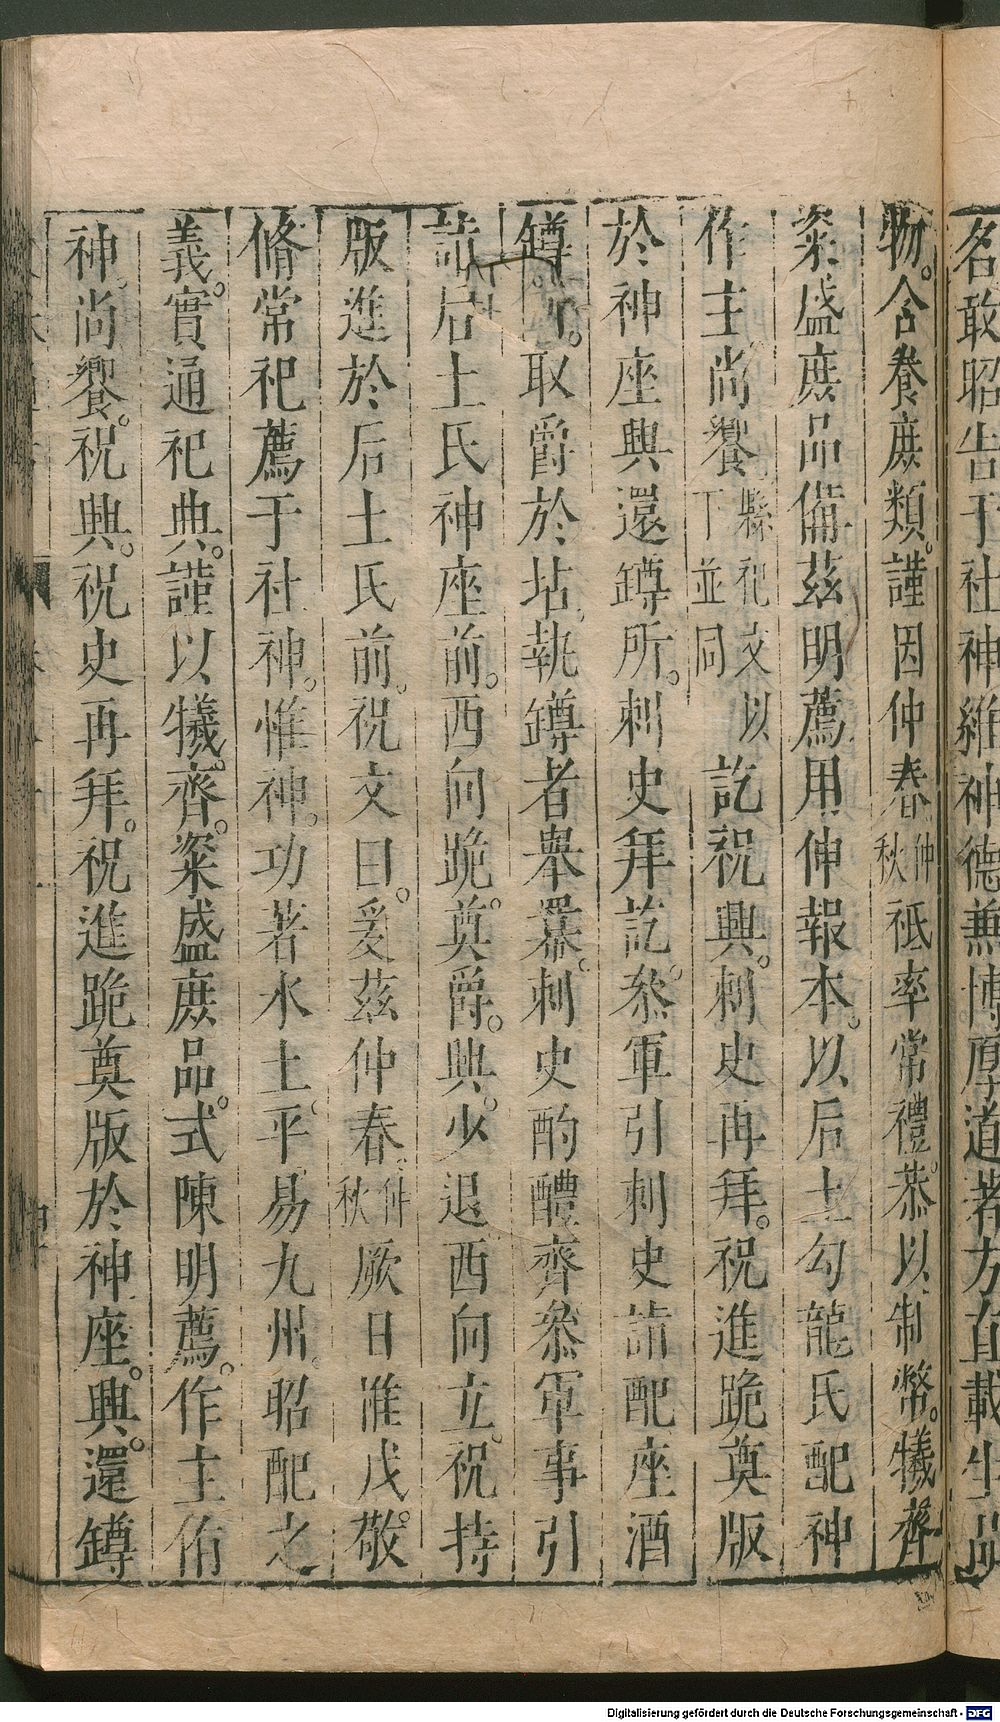 名敢昭告于社神維神德兼博厚道著方直載生品
物。含養庶類。謹因仲春仲秋祗率常禮。恭以制幣。犧齊
粢盛庶品備茲明薦用伸報本。以后土勾龍氏配神
作主尚饗縣祀文以下並同訖祝興。刺史再拜。祝進跪奠版
於神座興還罇所。刺史拜訖。叅軍引刺史詣配座酒
罇所。取爵於坫。執罇者舉羃。刺史酌醴齊叅軍事引
詣后土氏神座前。西向跪。奠爵。興。少退西向立。祝持
版進於后土氏前。祝文曰。爰茲仲春仲秋厥日惟戊。敬
脩常祀薦于社神。惟神。功著水土。平易九州。昭配之
義。實通祀典。謹以犧。齊。粢盛庶品。式陳明薦。作主侑
神。尚饗。祝興。祝史再拜。祝進跪奠版於神座。興。還罇
Digitalisierung gefördert durch die Deutsche Forschungsgemeinschaft - DFG